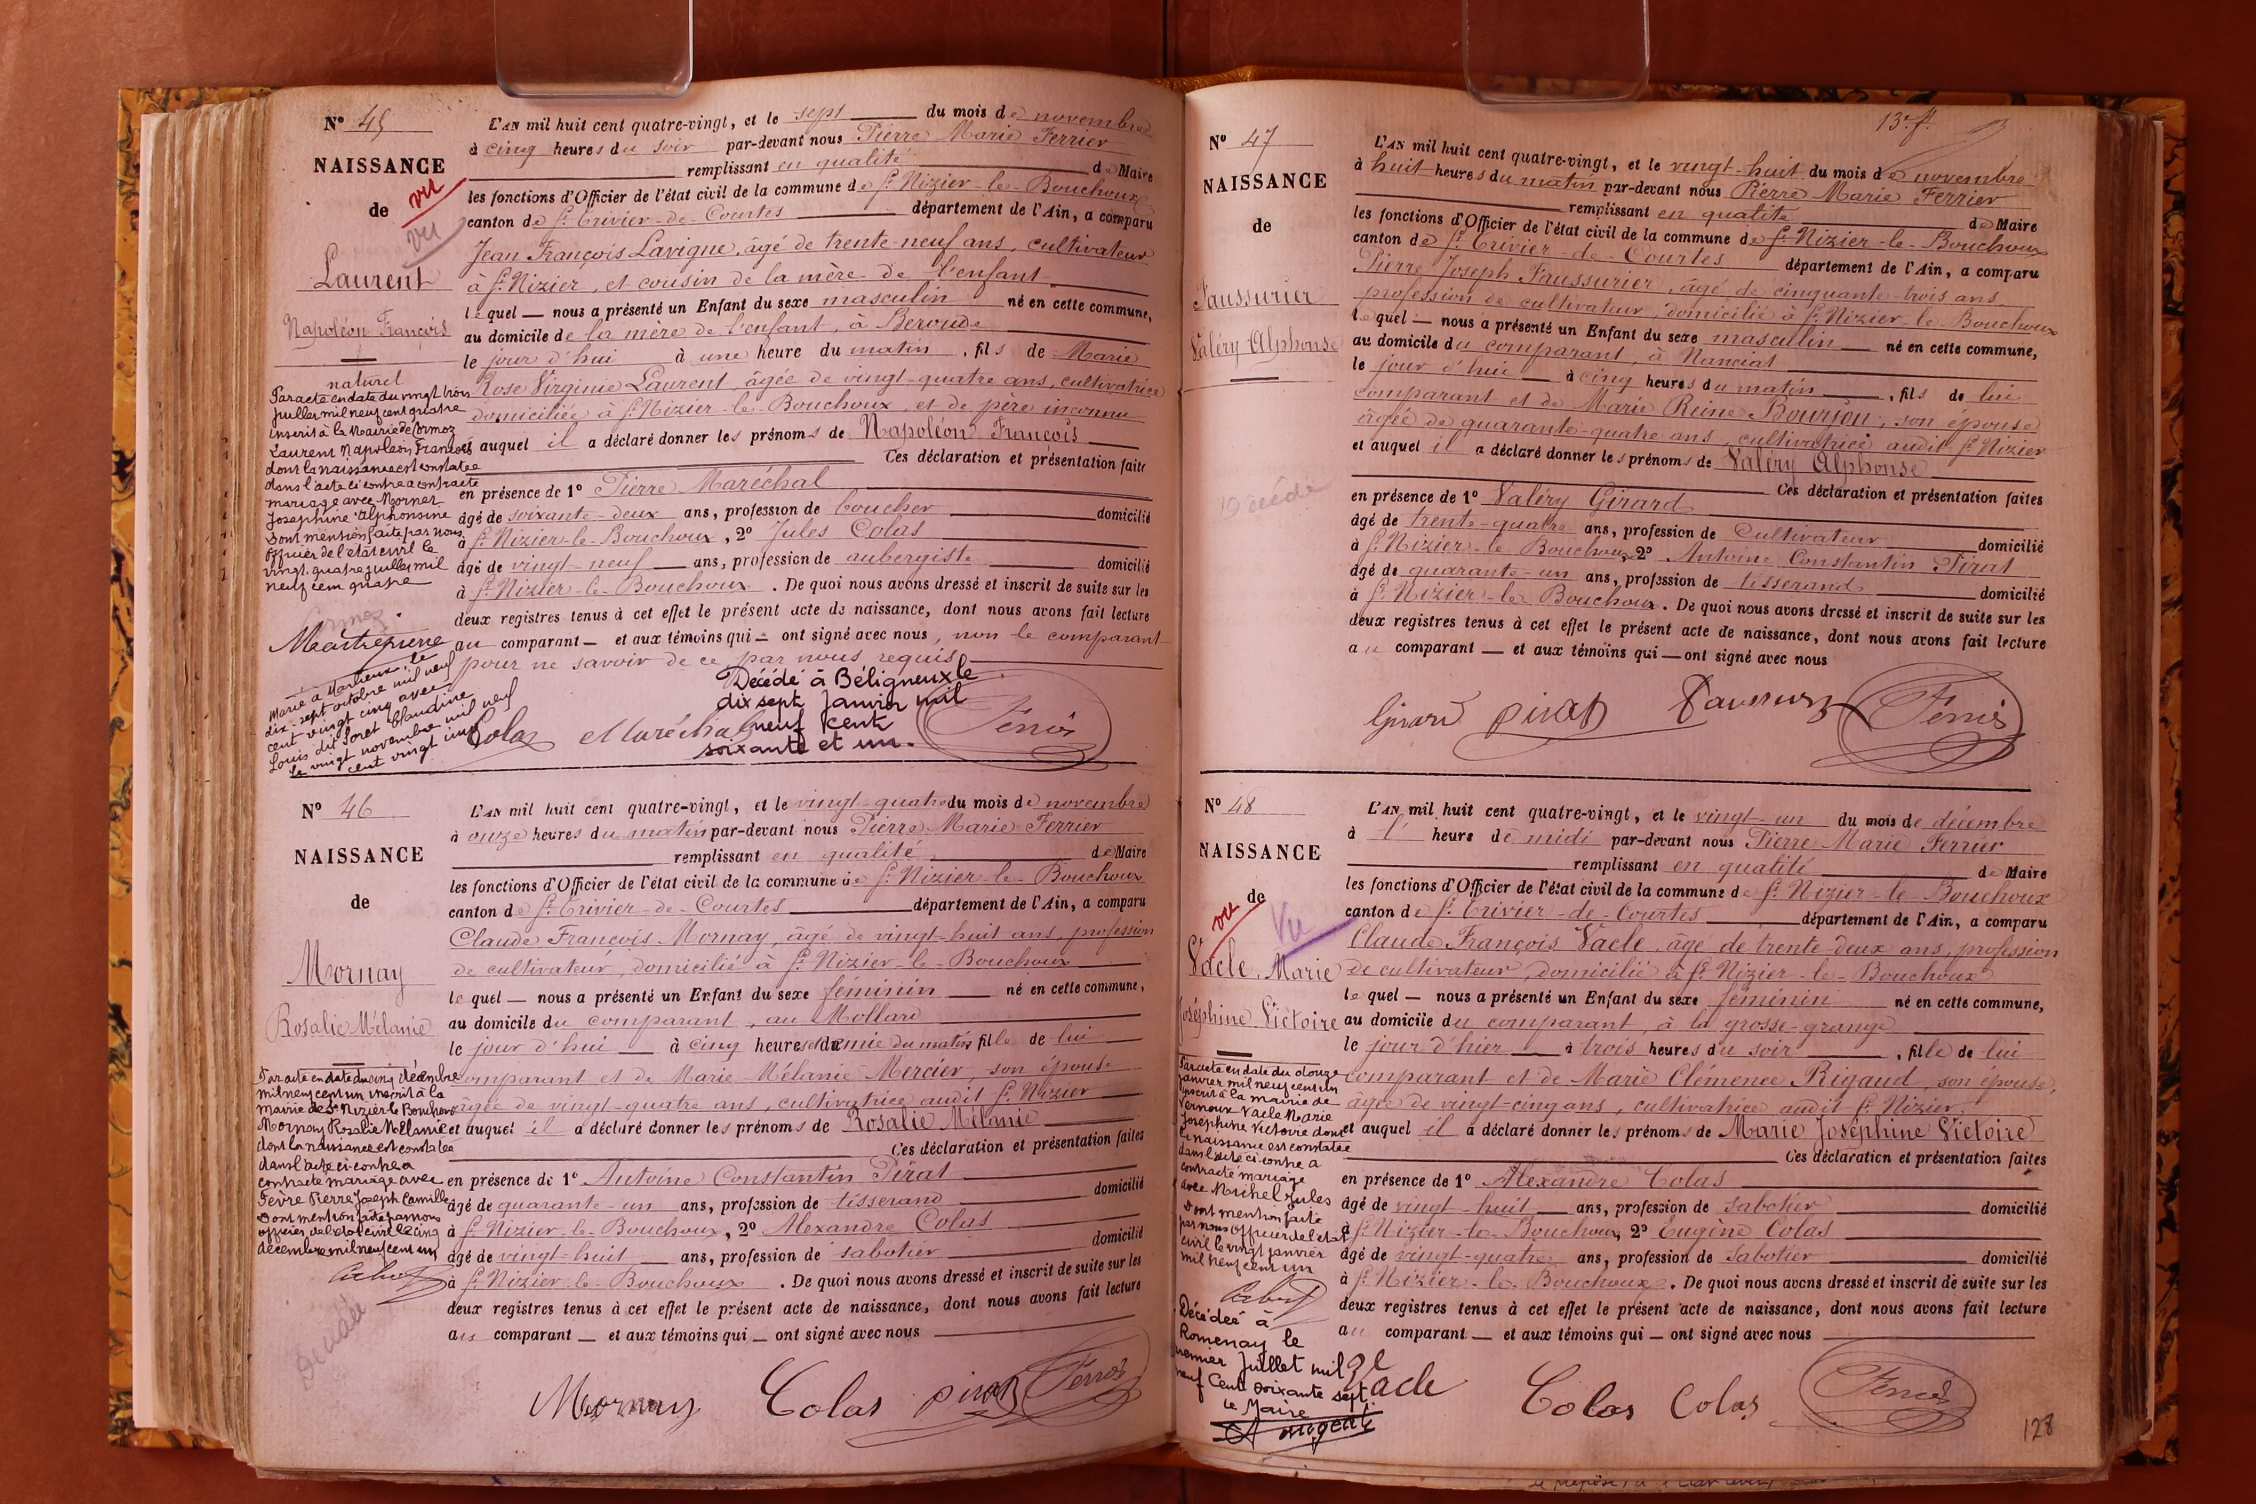 N° 45
NAISSANCE
de
vu
vu
Laurent
Napoléon François
L'AN mil huit cent quatre-vingt, et le sept du mois de novembre
à cinq heures du soir par-devant nous Pierre Marie Ferrier
remplissant en qualité de Maire
les fonctions d'Officier de l'état civil de la commune de St Nizier-le-Bouchoux
canton de St Trivier-de-Courtes département de l'Ain, a comparu
Jean François Lavigne, âgé de trente-neuf ans, cultivateur
à St Nizier, et cousin de la mère de l'enfant
lequel nous a présenté un Enfant du sexe masculin né en cette commune,
au domicile de la mère de l'enfant, à Beroude
le jour d'hui à une heure du matin, fils de Marie
naturel
Rose Virginie Laurent, âgée de vingt-quatre ans, cultivatrice
domiciliée à St Nizier-le-Bouchoux, et de père inconnu
et auquel il a déclaré donner les prénoms de Napoléon François
Ces déclaration et présentation faites
en présence de 1° Pierre Maréchal
âgé de soixante-deux ans, profession de boucher domicilié
à St Nizier-le-Bouchoux, 2° Jules Colas
âgé de vingt-neuf ans, profession de aubergiste domicilié
à St Nizier-le-Bouchoux. De quoi nous avons dressé et inscrit de suite sur les
deux registres tenus à cet effet le présent acte de naissance, dont nous avons fait lecture
au comparant et aux témoins qui ont signé avec nous, non le comparant
pour ne savoir de ce par nous requis
Par acte en date du vingt trois
juillet mil neuf cent quatre
inscrit à la Mairie de Cormoz
Laurent Napoléon François
dont la naissance est constatée
dans l'acte ci contre a contracté
mariage avec Mornet
Joséphine Alphonsine
Dont mention faite par nous
officier de l'état civil le
vingt quatre juillet mil
neuf cent quatre
Marié à Marlieux, le
dix-sept octobre mil neuf
cent vingt cinq avec
Louis dit Soret Claudine
le vingt novembre mil neuf
cent vingt cinq
Décédé à Béligneux le
dix sept Janvier mil
neuf cent
soixante et un.
Colas Maréchal Ferrier
N° 46
NAISSANCE
de
Mornay
Rosalie Mélanie
L'AN mil huit cent quatre-vingt, et le vingt-quatre du mois de novembre
à onze heures du matin par-devant nous Pierre Marie Ferrier
remplissant en qualité de Maire
les fonctions d'Officier de l'état civil de la commune de St Nizier-le-Bouchoux
canton de St Trivier-de-Courtes département de l'Ain, a comparu
Claude François Mornay, âgé de vingt-huit ans, profession
de cultivateur, domicilié à St Nizier-le-Bouchoux
lequel nous a présenté un Enfant du sexe féminin né en cette commune,
au domicile du comparant, au Mollard
le jour d'hui à cinq heures et demie du matin fille de lui
comparant et de Marie Mélanie Mercier, son épouse
âgée de vingt-quatre ans, cultivatrice audit St Nizier
et auquel il a déclaré donner les prénoms de Rosalie Mélanie
Ces déclaration et présentation faites
en présence de 1° Antoine Constantin Pirat
âgé de quarante-un ans, profession de tisserand domicilié
à St Nizier-le-Bouchoux, 2° Alexandre Colas
âgé de vingt-huit ans, profession de sabotier domicilié
à St Nizier-le-Bouchoux. De quoi nous avons dressé et inscrit de suite sur les
deux registres tenus à cet effet le présent acte de naissance, dont nous avons fait lecture
au comparant et aux témoins qui ont signé avec nous
Par acte en date du cinq décembre
mil neuf cent un inscrit à la
mairie de St Nizier le Bouchoux
Mornay Rosalie Mélanie
dont la naissance est constatée
dans l'acte ci contre a
contracté mariage avec
Fèvre Pierre Joseph Camille
Dont mention faite par nous
officier de l'état civil le cinq
décembre mil neuf cent un
Décédée
Mornay Colas Pirat Ferrier
13e f.
N° 47
NAISSANCE
de
Faussurier
Valéry Alphonse
Décédé
L'AN mil huit cent quatre-vingt, et le vingt-huit du mois de novembre
à huit heures du matin par-devant nous Pierre Marie Ferrier
remplissant en qualité de Maire
les fonctions d'Officier de l'état civil de la commune de St Nizier-le-Bouchoux
canton de St Trivier-de-Courtes département de l'Ain, a comparu
Pierre Joseph Faussurier, âgé de cinquante-trois ans
profession de cultivateur, domicilié à St Nizier-le-Bouchoux
lequel nous a présenté un Enfant du sexe masculin né en cette commune,
au domicile du comparant, à Nanciat
le jour d'hui à cinq heures du matin, fils de lui
comparant et de Marie Reine Bourion, son épouse
âgée de quarante-quatre ans, cultivatrice audit St Nizier
et auquel il a déclaré donner les prénoms de Valéry Alphonse
Ces déclaration et présentation faites
en présence de 1° Valéry Girard
âgé de trente-quatre ans, profession de Cultivateur domicilié
à St Nizier-le-Bouchoux 2° Antoine Constantin Pirat
âgé de quarante-un ans, profession de tisserand domicilié
à St Nizier-le-Bouchoux. De quoi nous avons dressé et inscrit de suite sur les
deux registres tenus à cet effet le présent acte de naissance, dont nous avons fait lecture
au comparant et aux témoins qui ont signé avec nous
Girard Pirat Ferrier
N° 48
NAISSANCE
de
vu
Vu
Vacle Marie
Joséphine Victoire
L'AN mil huit cent quatre-vingt, et le vingt-un du mois de décembre
à l' heure de midi par-devant nous Pierre Marie Ferrier
remplissant en qualité de Maire
les fonctions d'Officier de l'état civil de la commune de St Nizier-le-Bouchoux
canton de St Trivier-de-Courtes département de l'Ain, a comparu
Claude François Vacle, âgé de trente-deux ans, profession
de cultivateur, domicilié à St Nizier-le-Bouchoux
lequel nous a présenté un Enfant du sexe féminin né en cette commune,
au domicile du comparant, à la grosse grange
le jour d'hier à trois heures du soir, fille de lui
comparant et de Marie Clémence Rigaud, son épouse,
âgée de vingt-cinq ans, cultivatrice audit St Nizier
et auquel il a déclaré donner les prénoms de Marie Joséphine Victoire
Ces déclaration et présentation faites
en présence de 1° Alexandre Colas
âgé de vingt-huit ans, profession de sabotier domicilié
à St Nizier-le-Bouchoux, 2° Eugène Colas
âgé de vingt-quatre ans, profession de sabotier domicilié
à St Nizier-le-Bouchoux. De quoi nous avons dressé et inscrit de suite sur les
deux registres tenus à cet effet le présent acte de naissance, dont nous avons fait lecture
au comparant et aux témoins qui ont signé avec nous
Par acte en date du douze
janvier mil neuf cent un
inscrit à la mairie de
Vernoux Vacle Marie
Joséphine Victoire dont
la naissance est constatée
dans l'acte ci contre a
contracté mariage
avec Michel Jules
Dont mention faite
par nous officier de l'état
civil le vingt janvier
mil neuf cent un
Décédée à
Romenay le
premier Juillet mil
neuf cent soixante sept.
Le Maire
Vacle Colas Colas Ferrier
128